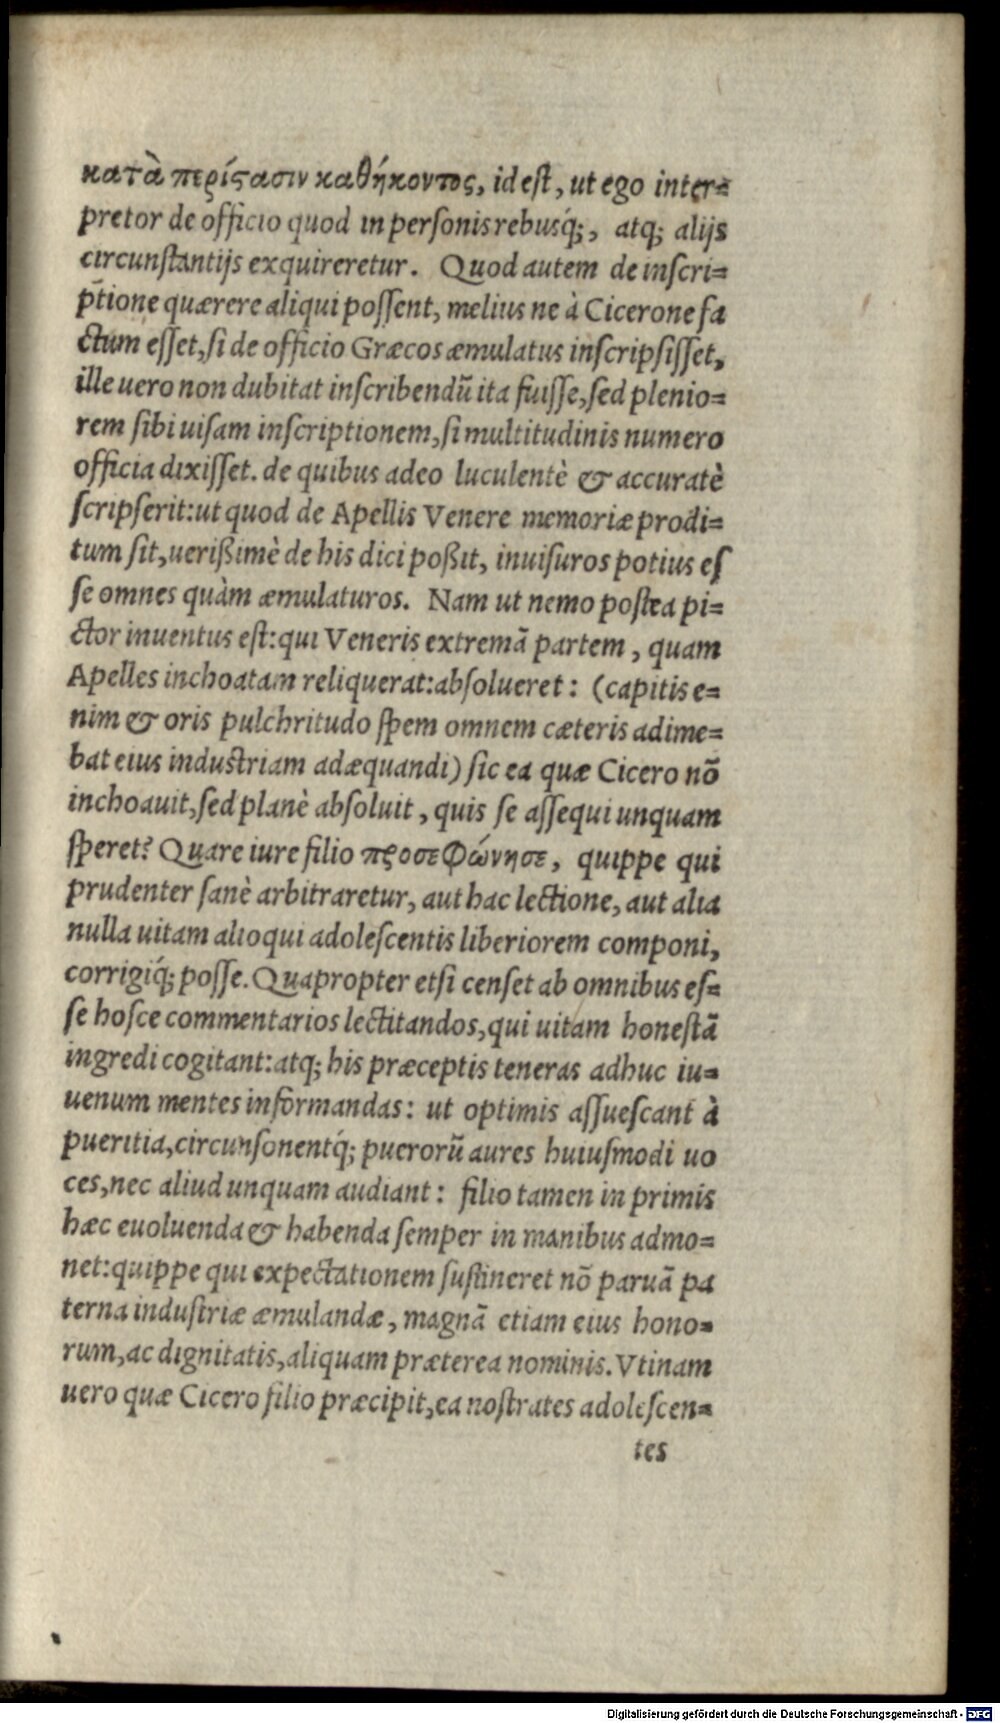 κατὰ περίϛασιν καθήκοντος, id est, ut ego inter=
pretor de officio quod in personis rebusq́;, atq; alijs
circunstantijs exquireretur. Quod autem de inscri=
ptione quærere aliqui possent, melius ne à Cicerone fa
ctum esset, si de officio Græcos æmulatus inscripsisset,
ille uero non dubitat inscribendũ ita fuisse, sed plenio=
rem sibi uisam inscriptionem, si multitudinis numero
officia dixisset. de quibus adeo luculentè & accuratè
scripserit: ut quod de Apellis Venere memoriæ prodi=
tum sit, uerißimè de his dici poßit, inuisuros potius es
se omnes quàm æmulaturos. Nam ut nemo postea pi=
ctor inuentus est: qui Veneris extremã partem, quam
Apelles inchoatam reliquerat: absolueret: (capitis e=
nim & oris pulchritudo spem omnem cæteris adime=
bat eius industriam adæquandi) sic ea quæ Cicero nõ
inchoauit, sed planè absoluit, quis se assequi unquam
speret? Quare iure filio προσεφώνησε, quippe qui
prudenter sanè arbitraretur, aut hac lectione, aut alia
nulla uitam alioqui adolescentis liberiorem componi,
corrigiq́; posse. Quapropter etsi censet ab omnibus es=
se hosce commentarios lectitandos, qui uitam honestã
ingredi cogitant: atq; his præceptis teneras adhuc iu=
uenum mentes informandas: ut optimis assuescant à
pueritia, circunsonentq́; puerorũ aures huiusmodi uo
ces, nec aliud unquam audiant: filio tamen in primis
hæc euoluenda & habenda semper in manibus admo=
net: quippe qui expectationem sustineret nõ paruã pa
terna industriæ æmulandæ, magnã etiam eius hono=
rum, ac dignitatis, aliquam præterea nominis. Vtinam
uero quæ Cicero filio præcipit, ea nostrates adolescen=
tes
Digitalisierung gefördert durch die Deutsche Forschungsgemeinschaft - DFG